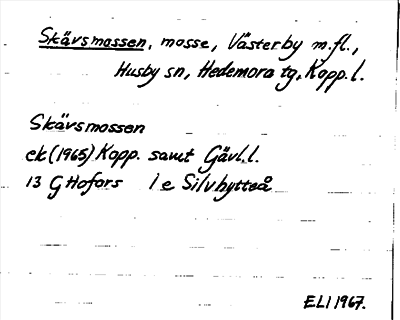 Skävsmossen, mosse, Västerby m.fl.,
Husby sn, Hedemora tg, Kopp.l.
Skävsmossen
ek (1965) Kopp. samt Gävl.l.
13 G Hofors 1 e Silvhytteå
ELI 1967.